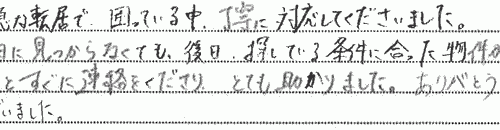 急な転居で、困っている中、丁寧に対応してくださいました。
日に見つからなくても、後日、探している条件に合った物件が
とすぐに連絡をくださり、とても助かりました。ありがとう
いました。